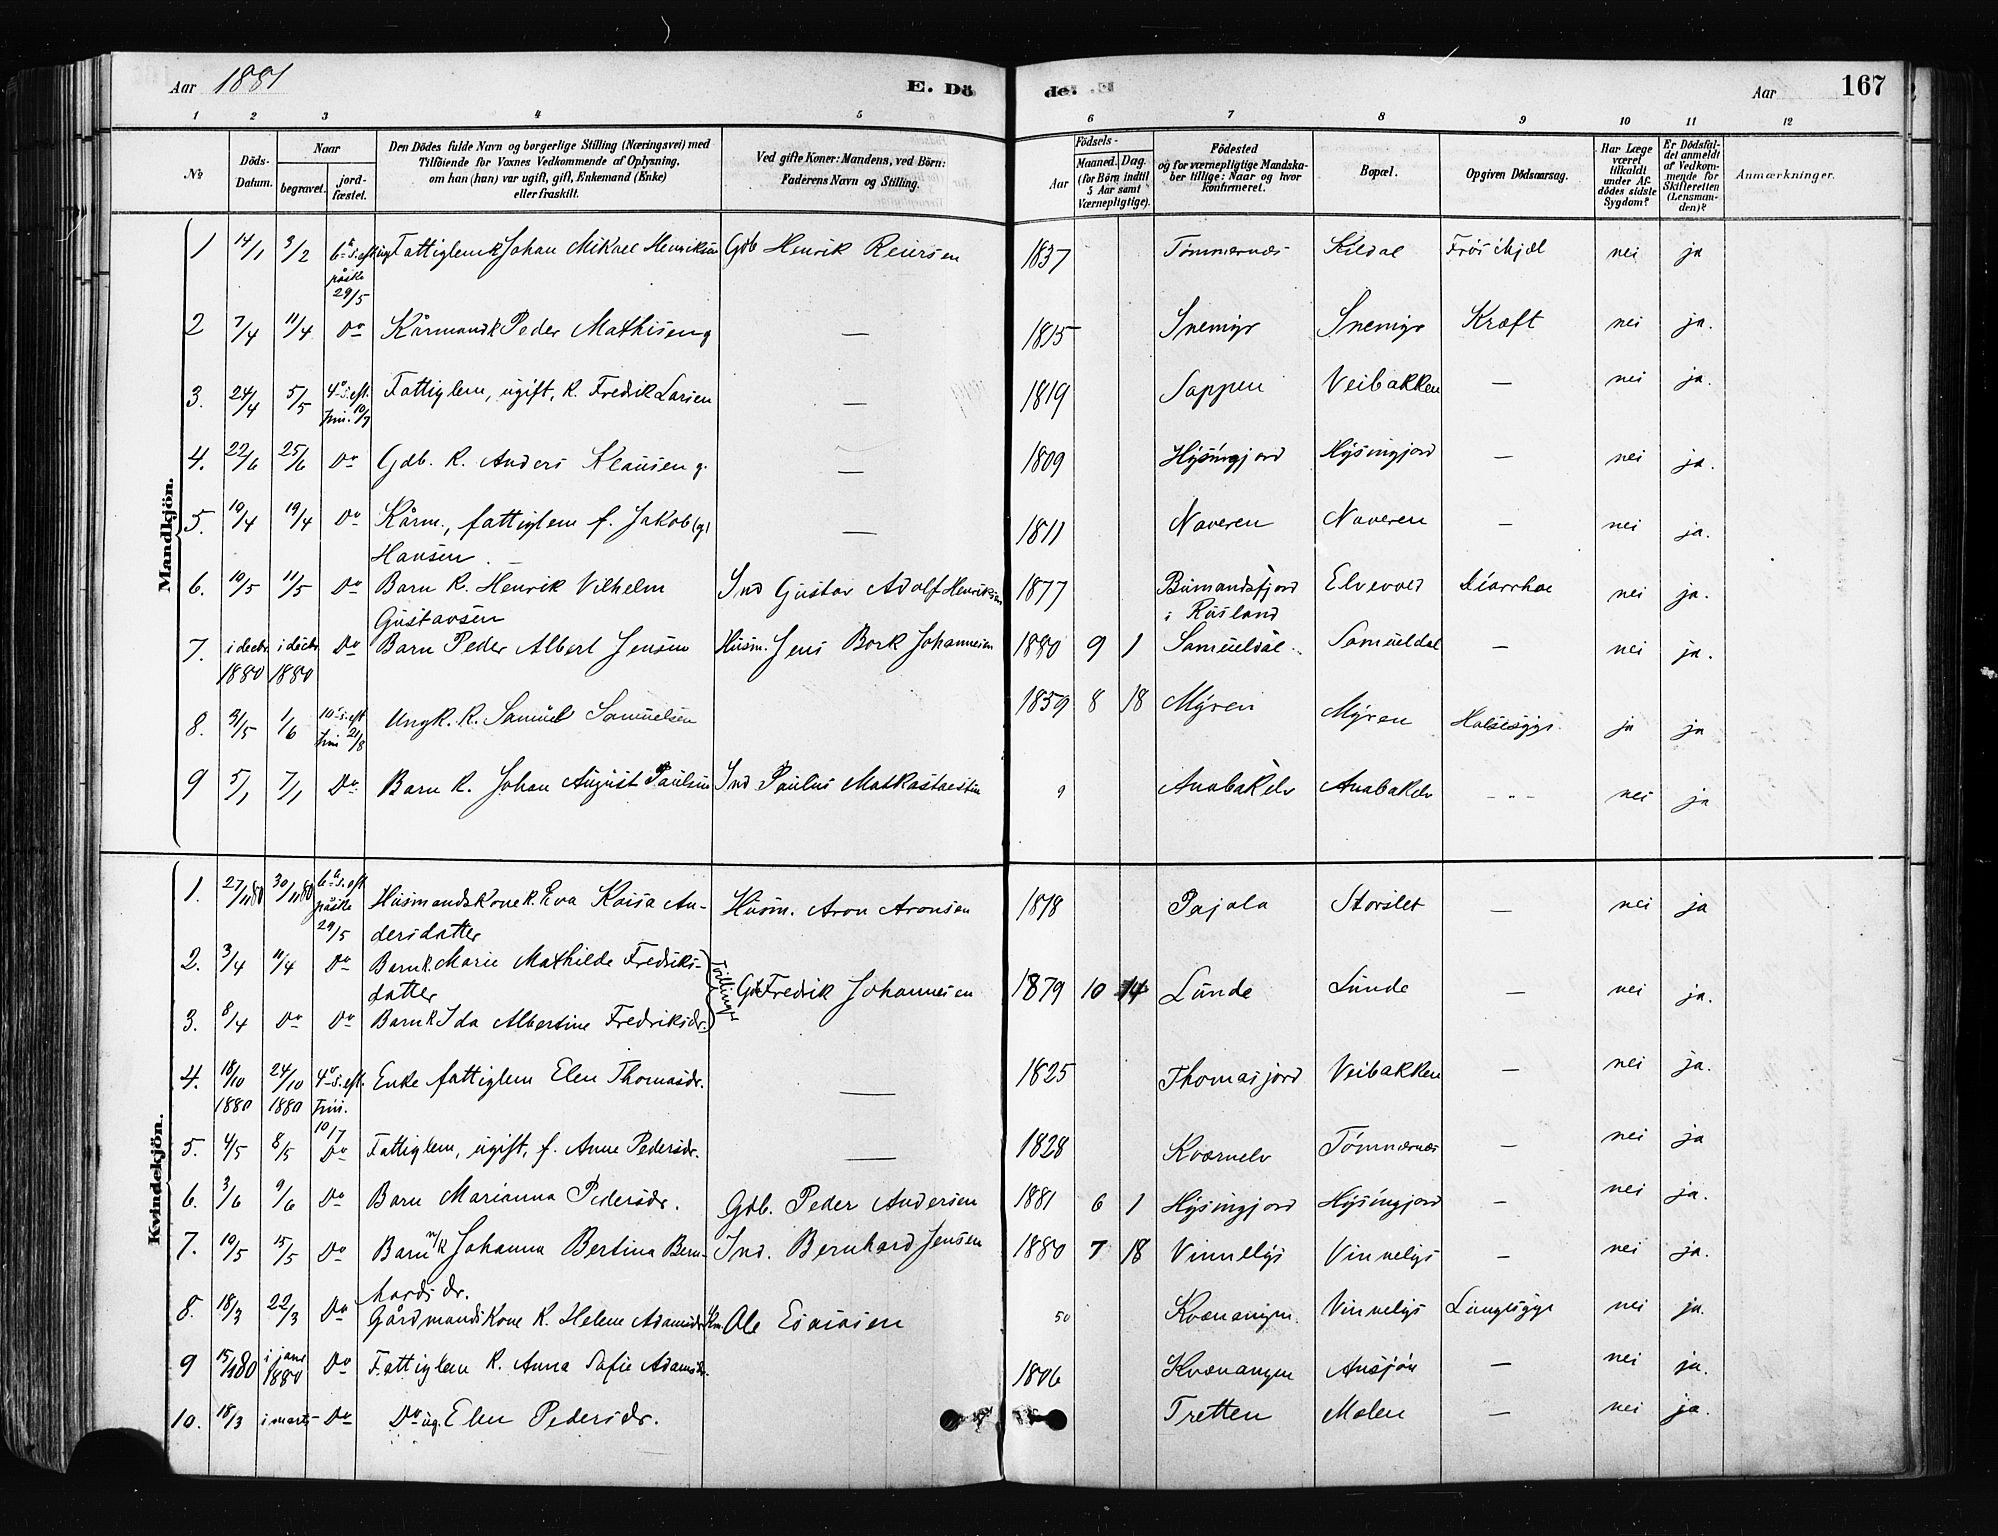 Aar 1881 E. Dö de. Aar 167
1 2 3 4 5 6 7 8 9 10 11 12
No
Döds-Datum.
Naar
begravet.
jord-fæstet.
Den Dödes fulde Navn og borgerlige Stilling (Næringsvei) med
Tilföiende for Voxnes Vedkommende af Oplysning,
om han (hun) var ugift, gift, Enkemand (Enke)
eller fraskilt.
Ved gifte Koner: Mandens, ved Börn:
Faderens Navn og Stilling.
Födsels-
Aar
Maaned. (for Börn indtil 5 Aar samt Værnepligtige).
Dag.
Födested
og for værnepligtige Mandska-
ber tillige: Naar og hvor
konfirmeret.
Bopæl.
Opgiven Dödsaarsag.
Har Læge
været
tilkaldt
under Af-
dödes sidste
Sygdom?
Er Dödsfal-
det anmeldt
af Vedkom-
mende for
Skifteretten
(Lensman-
den)?
Anmærkninger.
Mandkjön.
1 14/1 3/2 6te s. eft. påske 29/5 Fattiglem Johan Mikael Henriksen Gdb Henrik Reiersen 1837 Tømmernæs Kildal nei ja
2 7/4 11/4 Do Kårmand K Peder Mathisen g — 1815 Snemyr Snemyr Kræft nei ja.
3. 24/4 5/5 4de s. eft. Trin. 10/7 Fattiglem, ugift, K. Fredrik Larsen — 1819 Sappen Veibakken — nei ja.
4. 22/6 25/6 Do Gdb. K. Anders Klausen g. — 1809 Hysingjord Hysingjord — nei ja.
5. 10/4 19/4 Do Kårm., fattiglem f. Jakob (g)
Hansen — 1811 Naveren Naveren — nei ja.
6. 10/5 11/5 Do Barn K. Henrik Vilhelm
Gustavsen Ind Gustav Adolf Henriksen 1877 Bumandsfjord
i Rusland Elvevold Diarrhoe nei ja.
7. i decbr. 1880 i decbr. 1880 Do Barn Peder Albert Jensen Husm. Jens Bork Johannesen 1880 9 1 Samueldal Samueldal — nei ja.
8. 3/5 1/6 10de s. eft Trin 21/8 Ungk. K. Samuel Samuelsen 1859 8 18 Myren Myren Halsesyge. ja ja
9 5/1 7/1 Do Barn K. Johan August Paulsen Ind Paulus 9 Anabakelv Anabakelv — " — nei ja
Kvindekjön.
1. 27/11 80 30/11 80 6te s. eft påske 29/5 Husmandskone K. Eva Kaisa An-
dersdatter Husm. Aron Aronsen 1818 Pajala Storslet — nei ja
2. 3/4 11/4 Do Barn K. Marie Mathilde Fredriks-
datter Tvillinger Gdb Fredrik Johannesen 1879 10 14 Lunde Lunde — nei ja.
3. 8/4 Do Do Barn K Ida Albertine Fredriksdr.
4. 18/10 1880 24/10 1880 4de s. eft. Trin. 10/7 Enke fattiglem Elen Thomasdr. — 1825 Thomasjord Veibakken — nei ja.
5. 4/5 8/5 Do Fattiglem, ugift, f. Anne Pedersdr. — 1828 Kværnelv Tømmernæs — nei ja
6. 3/6 9/6 Do Barn Marianna Pedersdr. Gdb. Peder Andersen 1881 6 1 Hysingjord Hysingjord — nei ja.
7. 10/5 15/5 Do Barn Johanna Bertina Bern-
hardsdr. Ind. Bernhard Jensen 1880 7 18 Vinnelys Vinnelys — nei ja.
8. 18/3 22/3 Do Gårdmandskone K. Helene Adamsdr. Ole Esaiasen 50 Kvænangen. Vinnelys Lungesyge nei ja.
9 i janr 1880 Do Fattiglem K. Anna Sofie Adamsdr. 1806 Kvænangen — nei ja.
10. 18/3 i marts Do Do ug. Elen Pedersdr. Tretten Molen — nei ja.